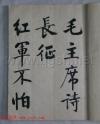 毛主席诗
長征
紅軍不怕